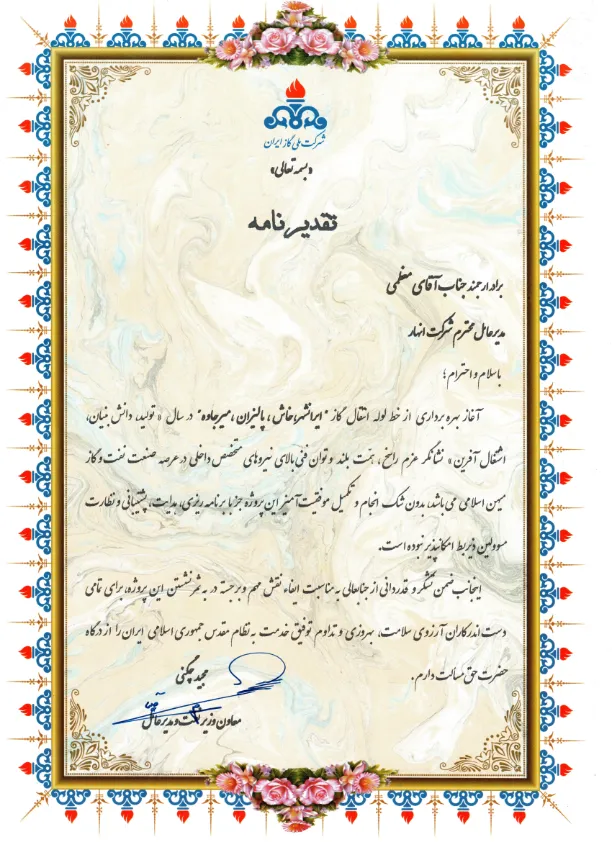 شرکت ملی گاز ایران
«بسمه تعالی»
تقدیرنامه
برادر ارجمند جناب آقای معظمی
مدیرعامل محترم شرکت انهار
باسلام و احترام؛
آغاز بهره برداری از خط لوله انتقال گاز "ایرانشهر،خاش، پالنزان، میرجاوه" در سال «تولید، دانش بنیان،
اشتغال آفرین» نشانگر عزم راسخ، همت بلند و توان فنی بالای نیروهای متخصص داخلی در عرصه صنعت نفت و گاز
میهن اسلامی می باشد، بدون شک انجام و تکمیل موفقیت آمیز این پروژه جز با برنامه ریزی، هدایت، پشتیبانی و نظارت
مسوولین ذیربط امکانپذیر نبوده است.
اینجانب ضمن تشکر و قدردانی از جنابعالی به مناسبت ایفاء نقش مهم و برجسته در به ثمر نشستن این پروژه، برای تمامی
دست اندرکاران آرزوی سلامت، بهروزی و تداوم توفیق خدمت به نظام مقدس جمهوری اسلامی ایران را از درگاه
حضرت حق مسألت دارم.
مجید چگنی
معاون وزیر نفت و مدیرعامل